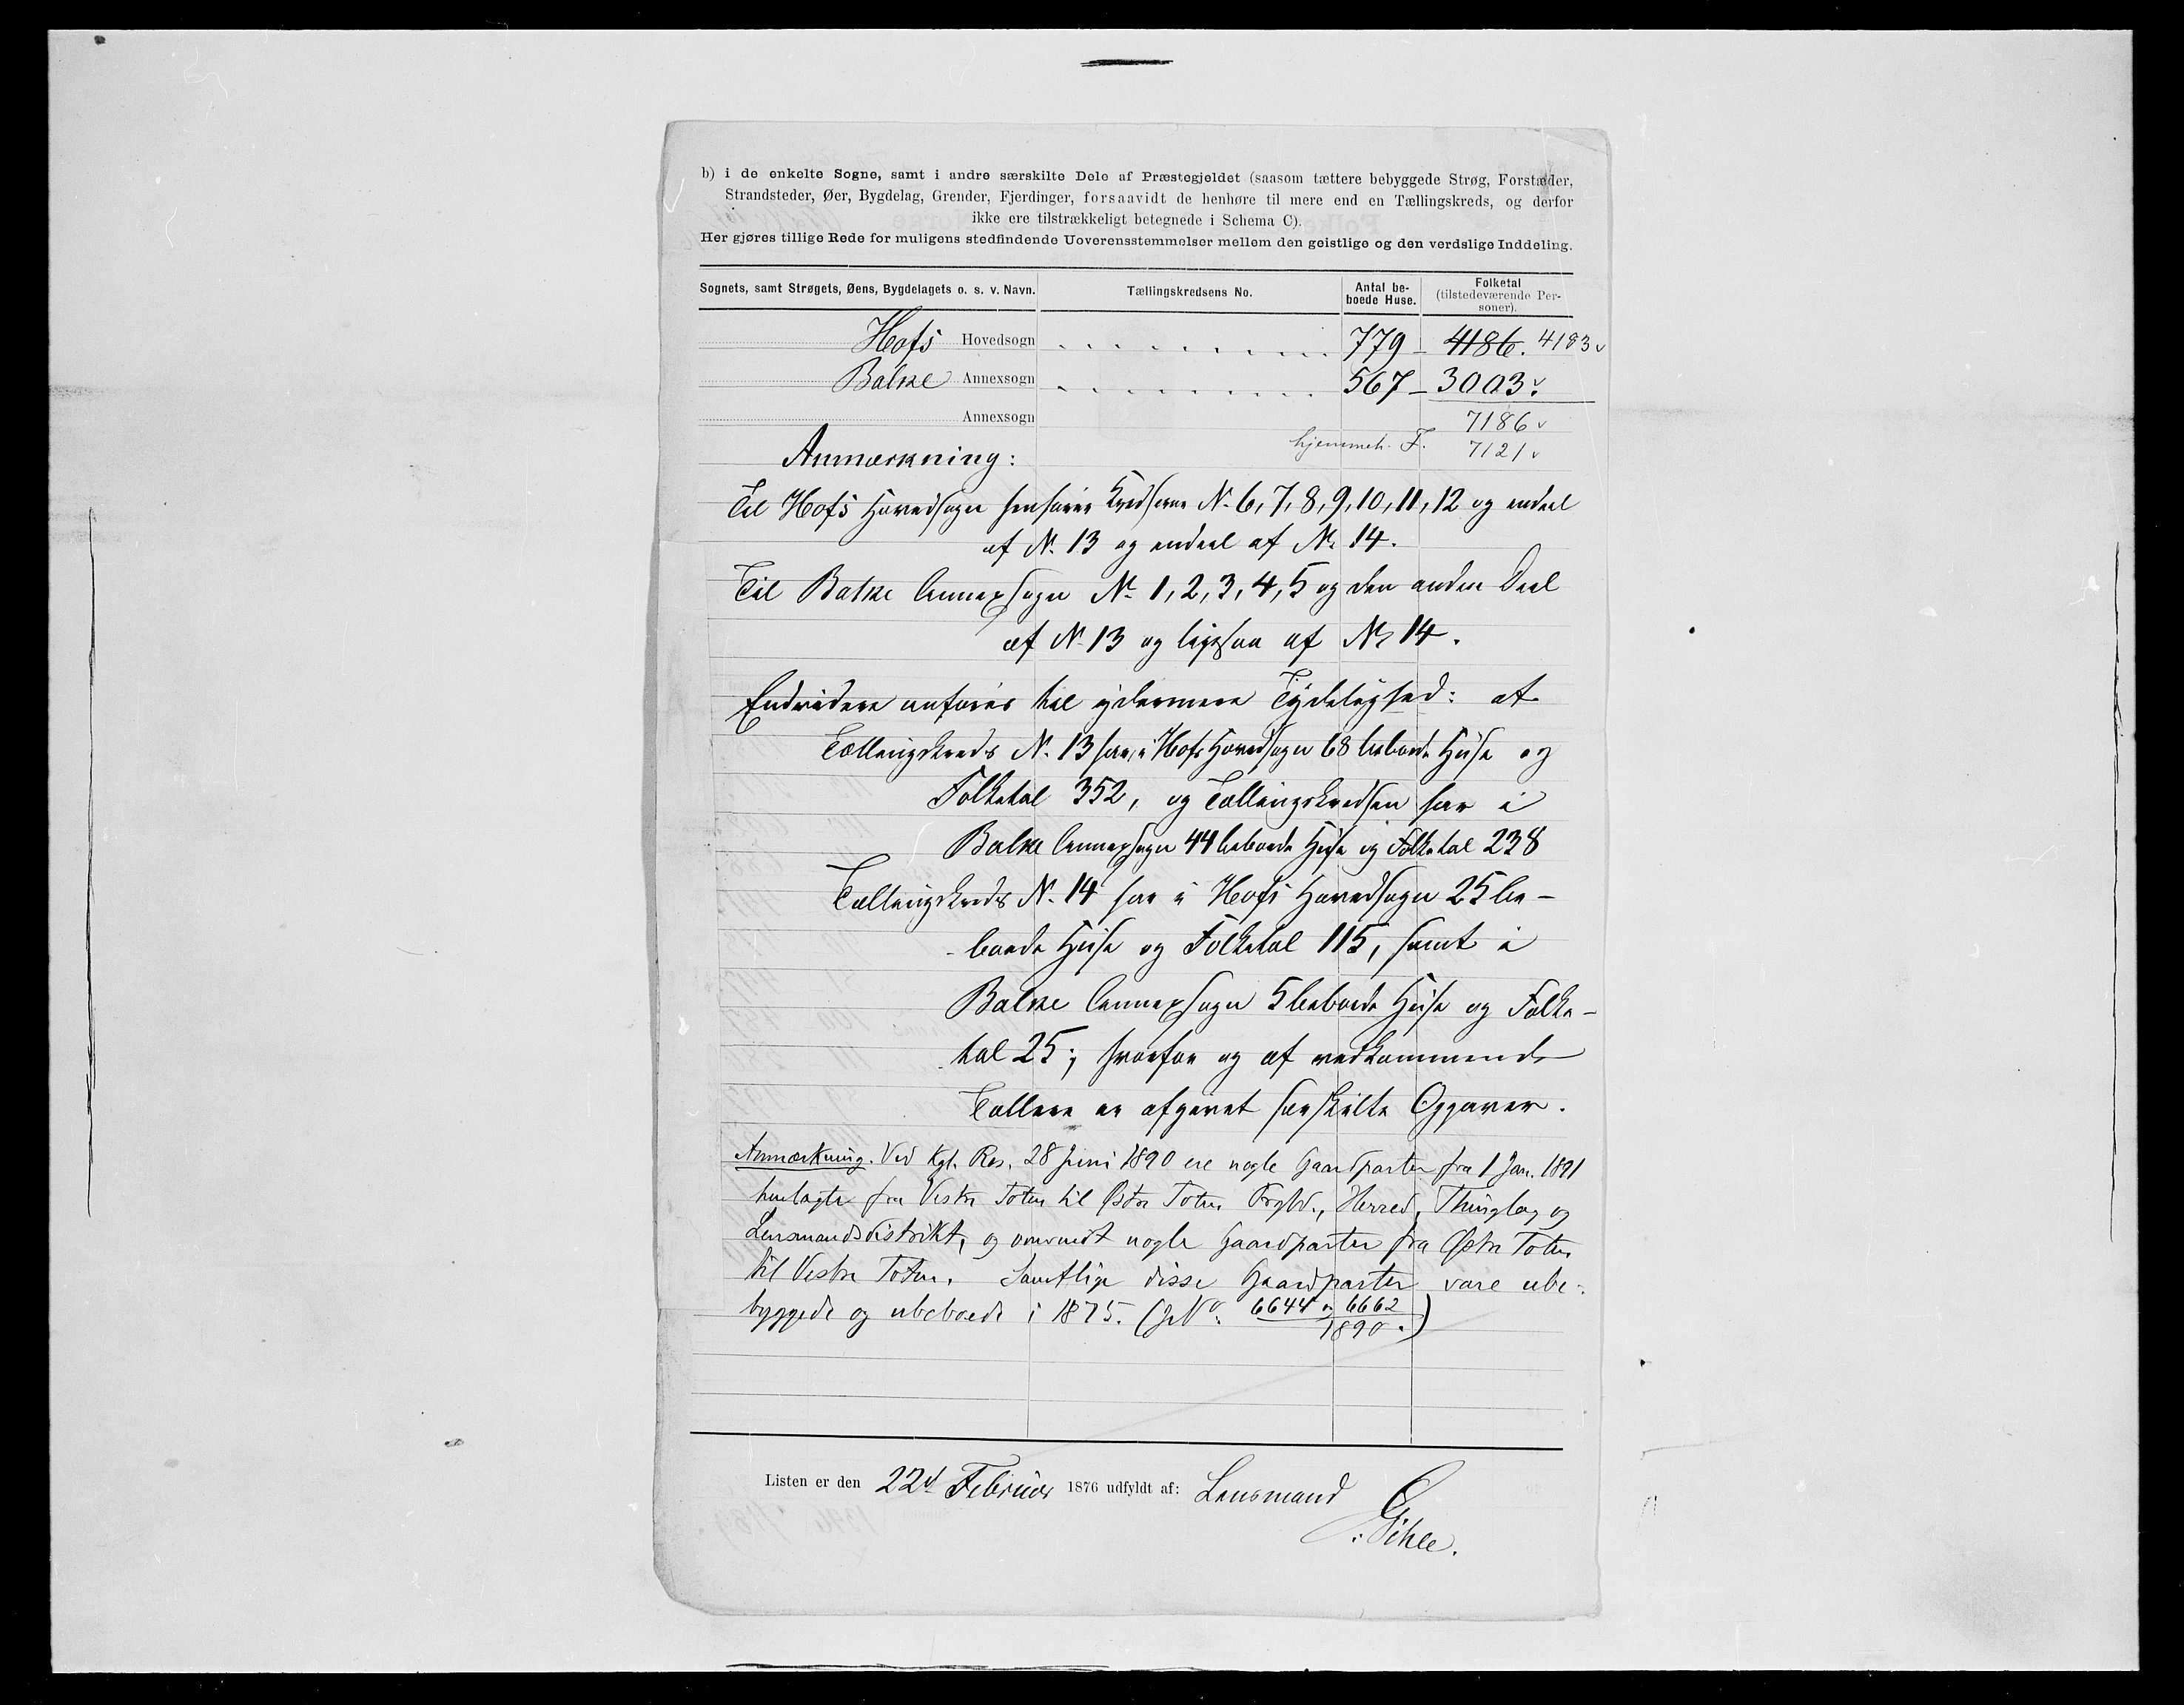 b) i de enkelte Sogne, samt i andre særskilte Dele af Præstegjeldet (saasom tættere bebyggede Strøg, Forstæder,
Strandsteder, Øer, Bygdelag, Grender, Fjerdinger, forsaavidt de henhøre til mere end en Tællingskreds, og derfor
ikke ere tilstrækkeligt betegnede i Schema C).
Her gjøres tillige Rede for muligens stedfindende Uoverensstemmelser mellem den geistlige og den verdslige Inddeling.
Sognets, samt Strøgets, Øens, Bygdelagets o. s. v. Navn. Tællingskredsens No. Antal be-boede Huse. Folketal (tilstedeværende Per-soner).
Hofs Hovedsogn 779 – 4186. 4183 v
Balke Annexsogn 567 – 3003 v
Annexsogn 7186 v
hjemmeh. F. 7121 v
Anmærkning:
Til Hofs Hovedsogn henhører Kredserne N. 6, 7, 8, 9, 10, 11, 12 og endeel
af N. 13 og endeel af N. 14.
Til Balke Annexsogn N. 1, 2, 3, 4, 5 og den anden Deel
af N. 13 og ligesaa af N. 14.
Endvidere anføres til ydermere Tydelighed: at
Tællingskreds N. 13 har i Hofs Hovedsogn 68 beboede Huse og
Folketal 352, og Tællingskredsen har i
Balke Annexsogn 44 beboede Huse og Folketal 238
Tællingskreds N. 14 har i Hofs Hovedsogn 25 be-
boede Huse og Folketal 115, samt i
Balke Annexsogn 5 beboede Huse og Folke-
tal 25; hvorfor og af vedkommende
Tællere er afgivet særskilte Opgaver.
Anmærkning. Ved Kgl. Res. 28 Juni 1890 ere nogle Gaardparter fra 1 Jan. 1891
henlagte fra Vestre Toten til Østre Toten Prgld., Herred, Thinglag og
Lensmandsdistrikt, og omvendt nogle Gaardparter fra Østre Toten
til Vestre Toten. Samtlige disse Gaardparter vare ube-
byggede og ubeboede i 1875. (J.No. 6644 og 6662
1890.)
Listen er den 22d Februar 1876 udfyldt af: Lensmand
Gihle.